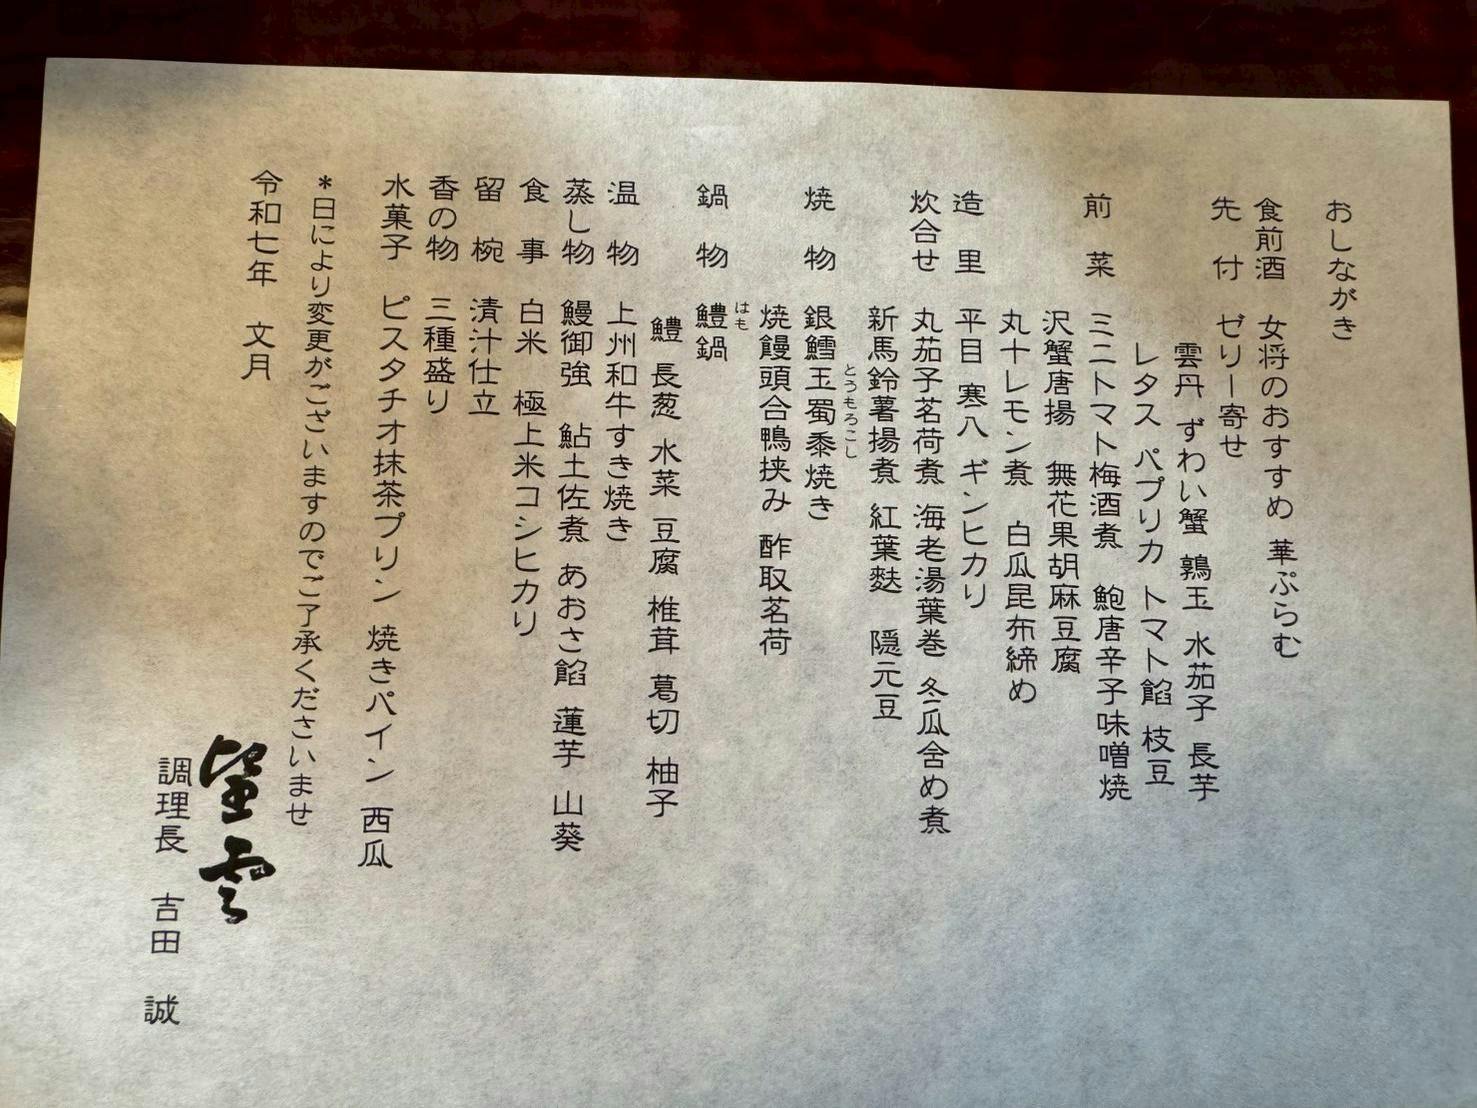 おしながき
食前酒　女将のおすすめ　華ぷらむ
先　付　ゼリー寄せ
雲丹　ずわい蟹　鶉玉　水茄子　長芋
レタス　パプリカ　トマト餡　枝豆
前　菜　ミニトマト梅酒煮　鮑唐辛子味噌焼
沢蟹唐揚　無花果胡麻豆腐
丸十レモン煮　白瓜昆布締め
造　里　平目　寒八　ギンヒカリ
炊合せ　丸茄子茗荷煮　海老湯葉巻　冬瓜含め煮
新馬鈴薯揚煮　紅葉麩　隠元豆
とうもろこし
焼　物　銀鱈玉蜀黍焼き
焼饅頭合鴨挟み　酢取茗荷
はも
鍋　物　鱧鍋
鱧　長葱　水菜　豆腐　椎茸　葛切　柚子
温　物　上州和牛すき焼き
蒸し物　鰻御強　鮎土佐煮　あおさ餡　蓮芋　山葵
食　事　白米　極上米コシヒカリ
留　椀　清汁仕立
香の物　三種盛り
水菓子　ピスタチオ抹茶プリン　焼きパイン　西瓜
＊日により変更がございますのでご了承くださいませ
令和七年　文月
望雲
調理長　吉田　誠